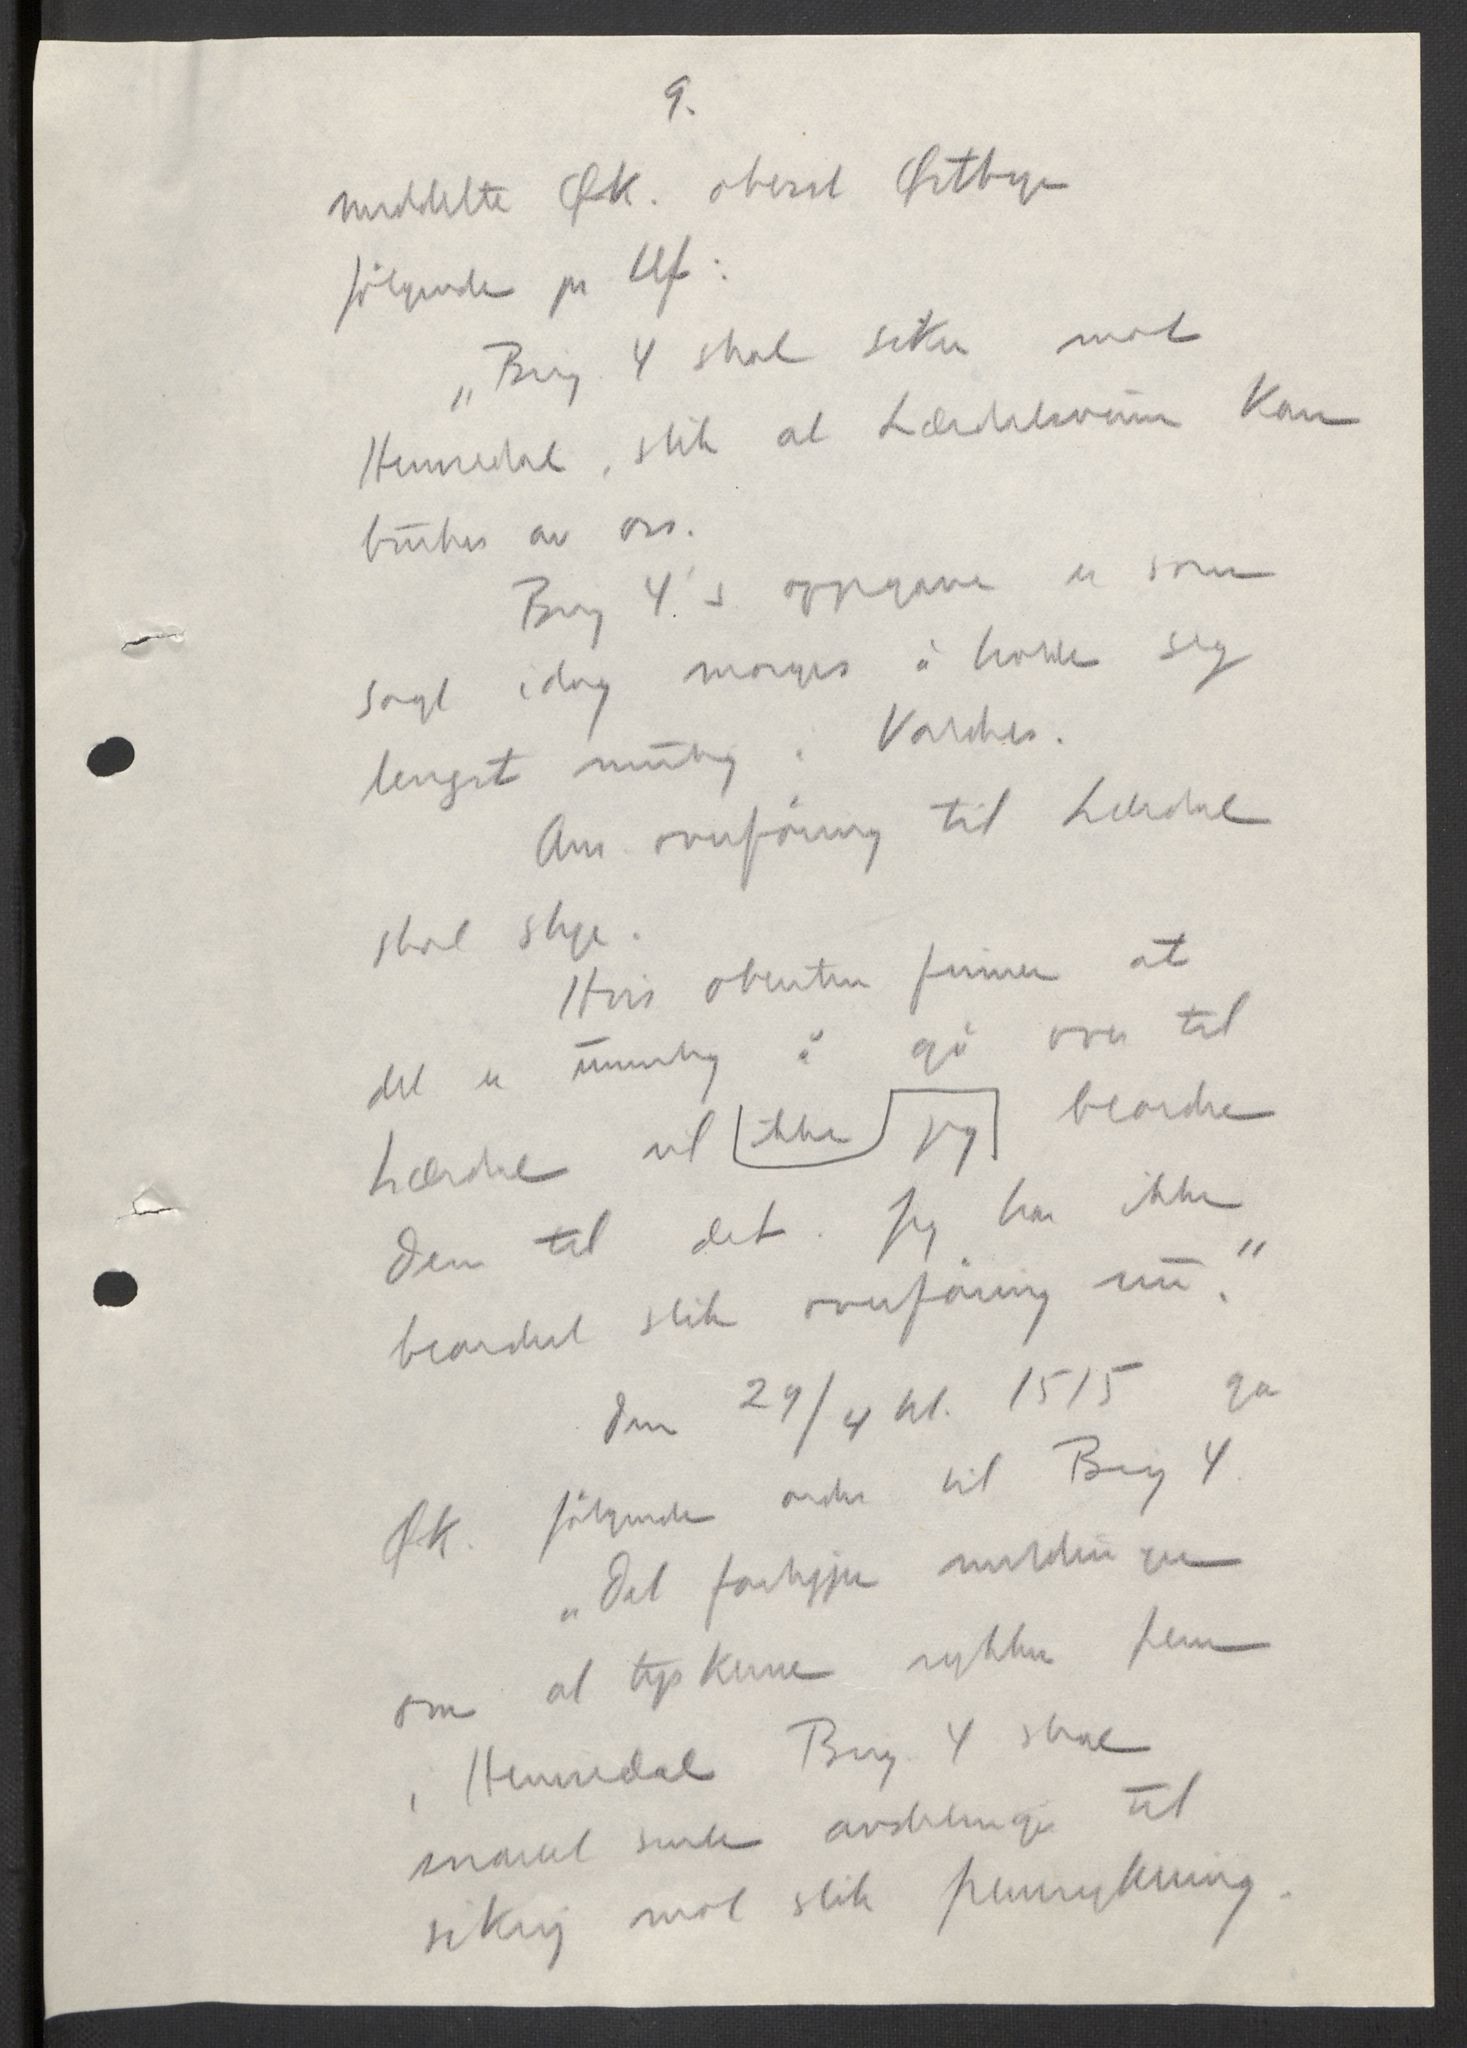 9.
meddelte ØK. oberst Østbye
følgende pr tlf:
„Brig. 4 skal sikre mot
Hemsedal, slik at Lærdalsveien kan
brukes av oss.
Brig 4's oppgave er som
sagt idag morges å holde seg
lengst mulig i Valdres.
overføring til Lærdal
skal skje.
Hvis obersten finner at
det er umulig å gå over til
Lærdal vil ikke jeg beordre
Dem til det. Jeg har ikke
beordret slik overføring nu."
Den 29/4 kl. 1515 ga
ØK. følgende ordre til Brig 4.
„Det foreligger meldinger
om at tyskerne rykker frem
i Hemsedal Brig. 4 skal
snarest sende avdelinger til
sikring mot slik fremrykning.